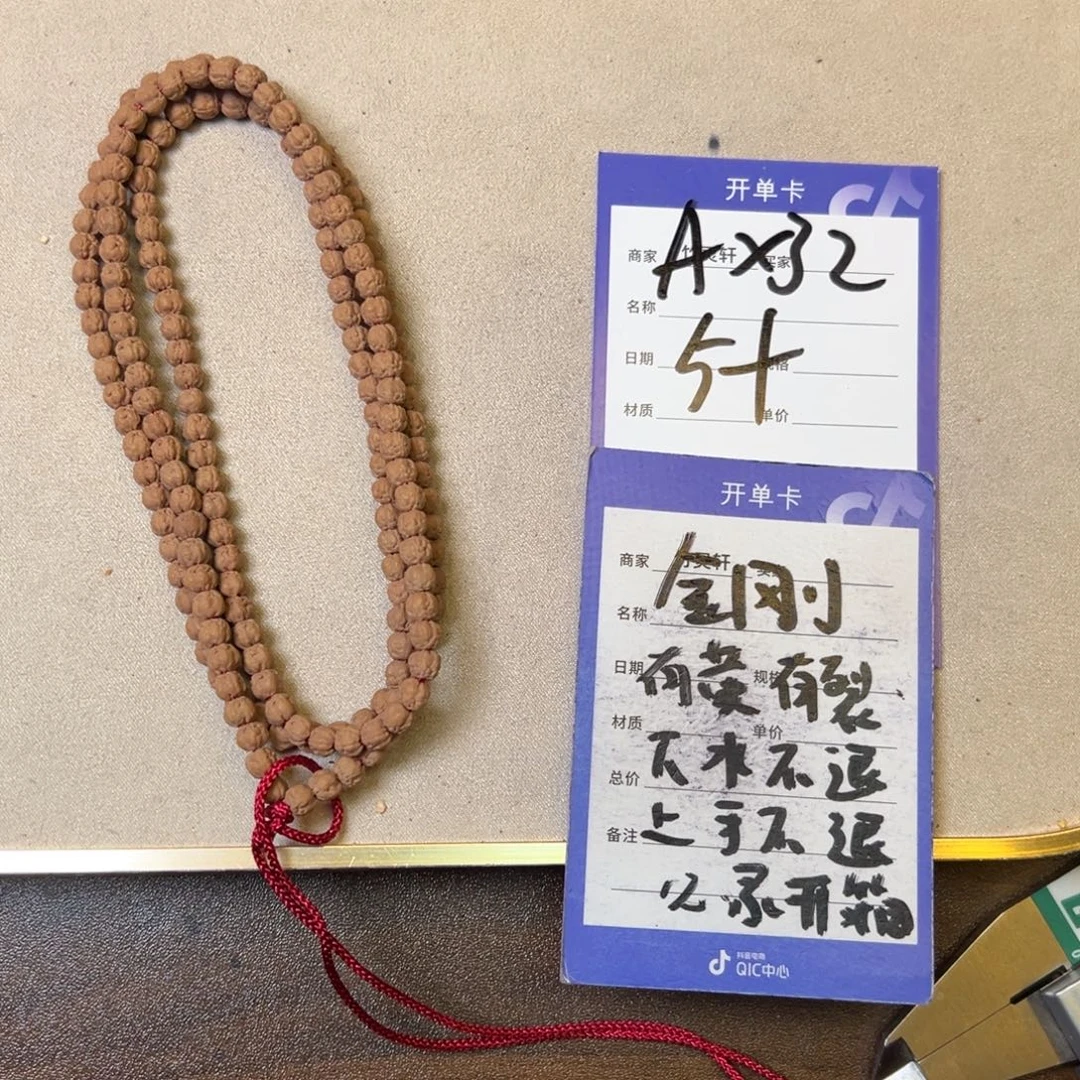 开单卡
商家 竹灵轩 买家
A X32
名称
日期 规格
5十
材质 单价
开单卡
商家
金刚
名称
日期 规格
有黄有裂、
材质 单价
下水不退
总价
上手不退
备注
记录开箱
抖音电商
QIC中心